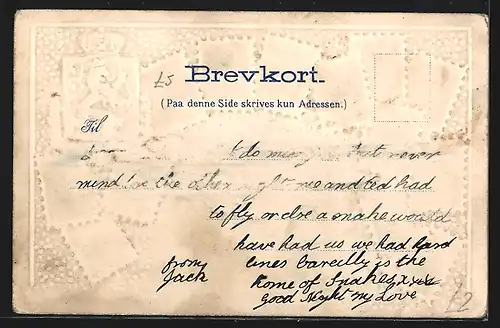 £5
Brevkort.
(Paa denne Side skrives kun Adressen.)
Til
I do miss you but never
mind for the other night me and ted had
to fly or else a snake would
have had us we had hard
lines Bareilly is the
Home of Snakes xxxx
Good Night my Love
from
Jack
£2